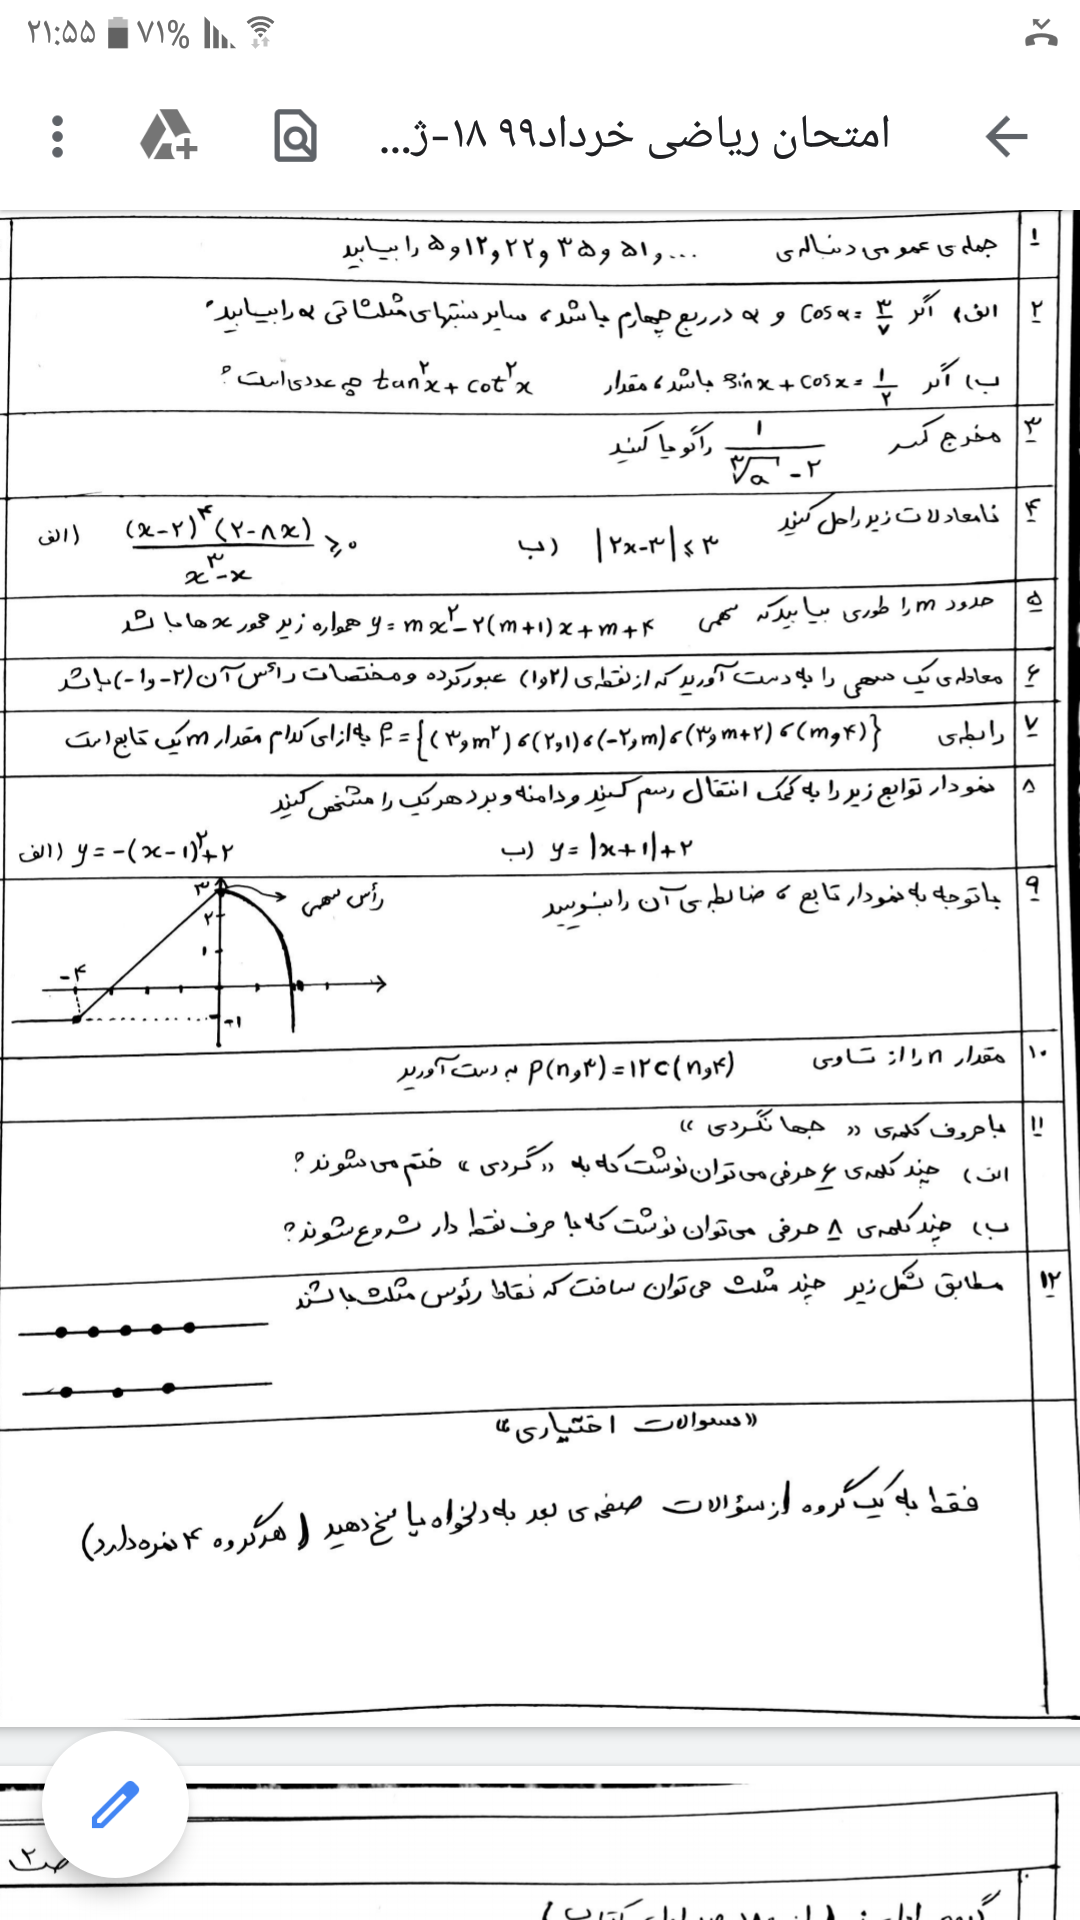 ۲۱:۵۵ ۷۱%
امتحان ریاضی خرداد۹۹ ۱۸-ژ...
۱ جمله‌ی عمومی دنباله‌ی ... و ۵۱ و ۳۵ و ۲۲ و ۱۲ و ۵ را بیابید
۲ الف) اگر cosα = ۳/۷ و α در ربع چهارم باشد، سایر نسبتهای مثلثاتی α را بیابید.
ب) اگر sinx + cosx = ۱/۲ باشد، مقدار tan²x + cot²x چه عددی است؟
۳ مخرج کسر ۱/(∛a - ۲) را گویا کنید
۴ نامعادلات زیر را حل کنید
الف) (x-۲)^۴(۲-۸x)/(x^۳-x) ≥ ۰ ب) |۲x-۳| ≤ ۳
۵ حدود m را طوری بیابید که سهمی y = mx²-۲(m+۱)x+m+۴ همواره زیر محور xها باشد
۶ معادله‌ی یک سهمی را به دست آورید که از نقطه‌ی (۱و۲) عبور کرده و مختصات رأس آن (-۱و-۲) باشد
۷ رابطه‌ی f = {(۳و m²)، (۲و۱)، (-۲و m)، (۳و m+۲)، (m و۴)} به ازای کدام مقدار m یک تابع است
۸ نمودار توابع زیر را به کمک انتقال رسم کنید و دامنه و برد هر یک را مشخص کنید
الف) y = -(x-۱)²+۲ ب) y = |x+۱|+۲
۹ با توجه به نمودار تابع، ضابطه‌ی آن را بنویسید
رأس سهمی
۳
۲
۱
-۴
-۱
۱۰ مقدار n را از تساوی P(n و۳) = ۱۲C(n و۴) به دست آورید
۱۱ با حروف کلمه‌ی «جهانگردی»
الف) چند کلمه‌ی ۶ حرفی می‌توان نوشت که به «گردی» ختم می‌شوند؟
ب) چند کلمه‌ی ۸ حرفی می‌توان نوشت که با حرف نقطه دار شروع شوند؟
۱۲ مطابق شکل زیر چند مثلث می‌توان ساخت که نقاط رئوس مثلث باشند
«سوالات اختیاری»
فقط به یک گروه از سؤالات صفحه‌ی بعد به دلخواه پاسخ دهید (هر گروه ۴ نمره دارد)
ص۲